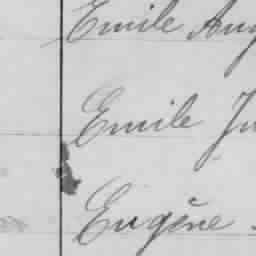 Emile Aug
Emile Ju
Eugène